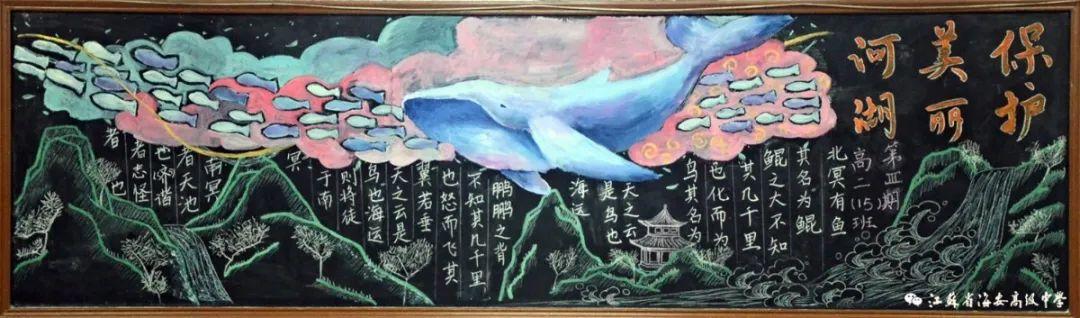 保护
美丽
河湖
第Ⅲ期
高二(15)班
北冥有鱼
其名为鲲
鲲之大不知
其几千里
也化而为
鸟其名为
天之云
是鸟也
海运
鹏鹏之背
不知其几千里
也怒而飞其
翼若垂
天之云是
鸟也海运
则将徙
于南
冥
南冥
者天池
也谐
者志怪
者也
江苏省海安高级中学